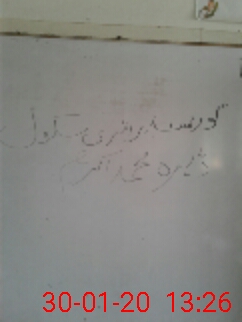 گورنمنٹ پرائمری سکول
ڈیرہ محمد
30-01-20 13:26